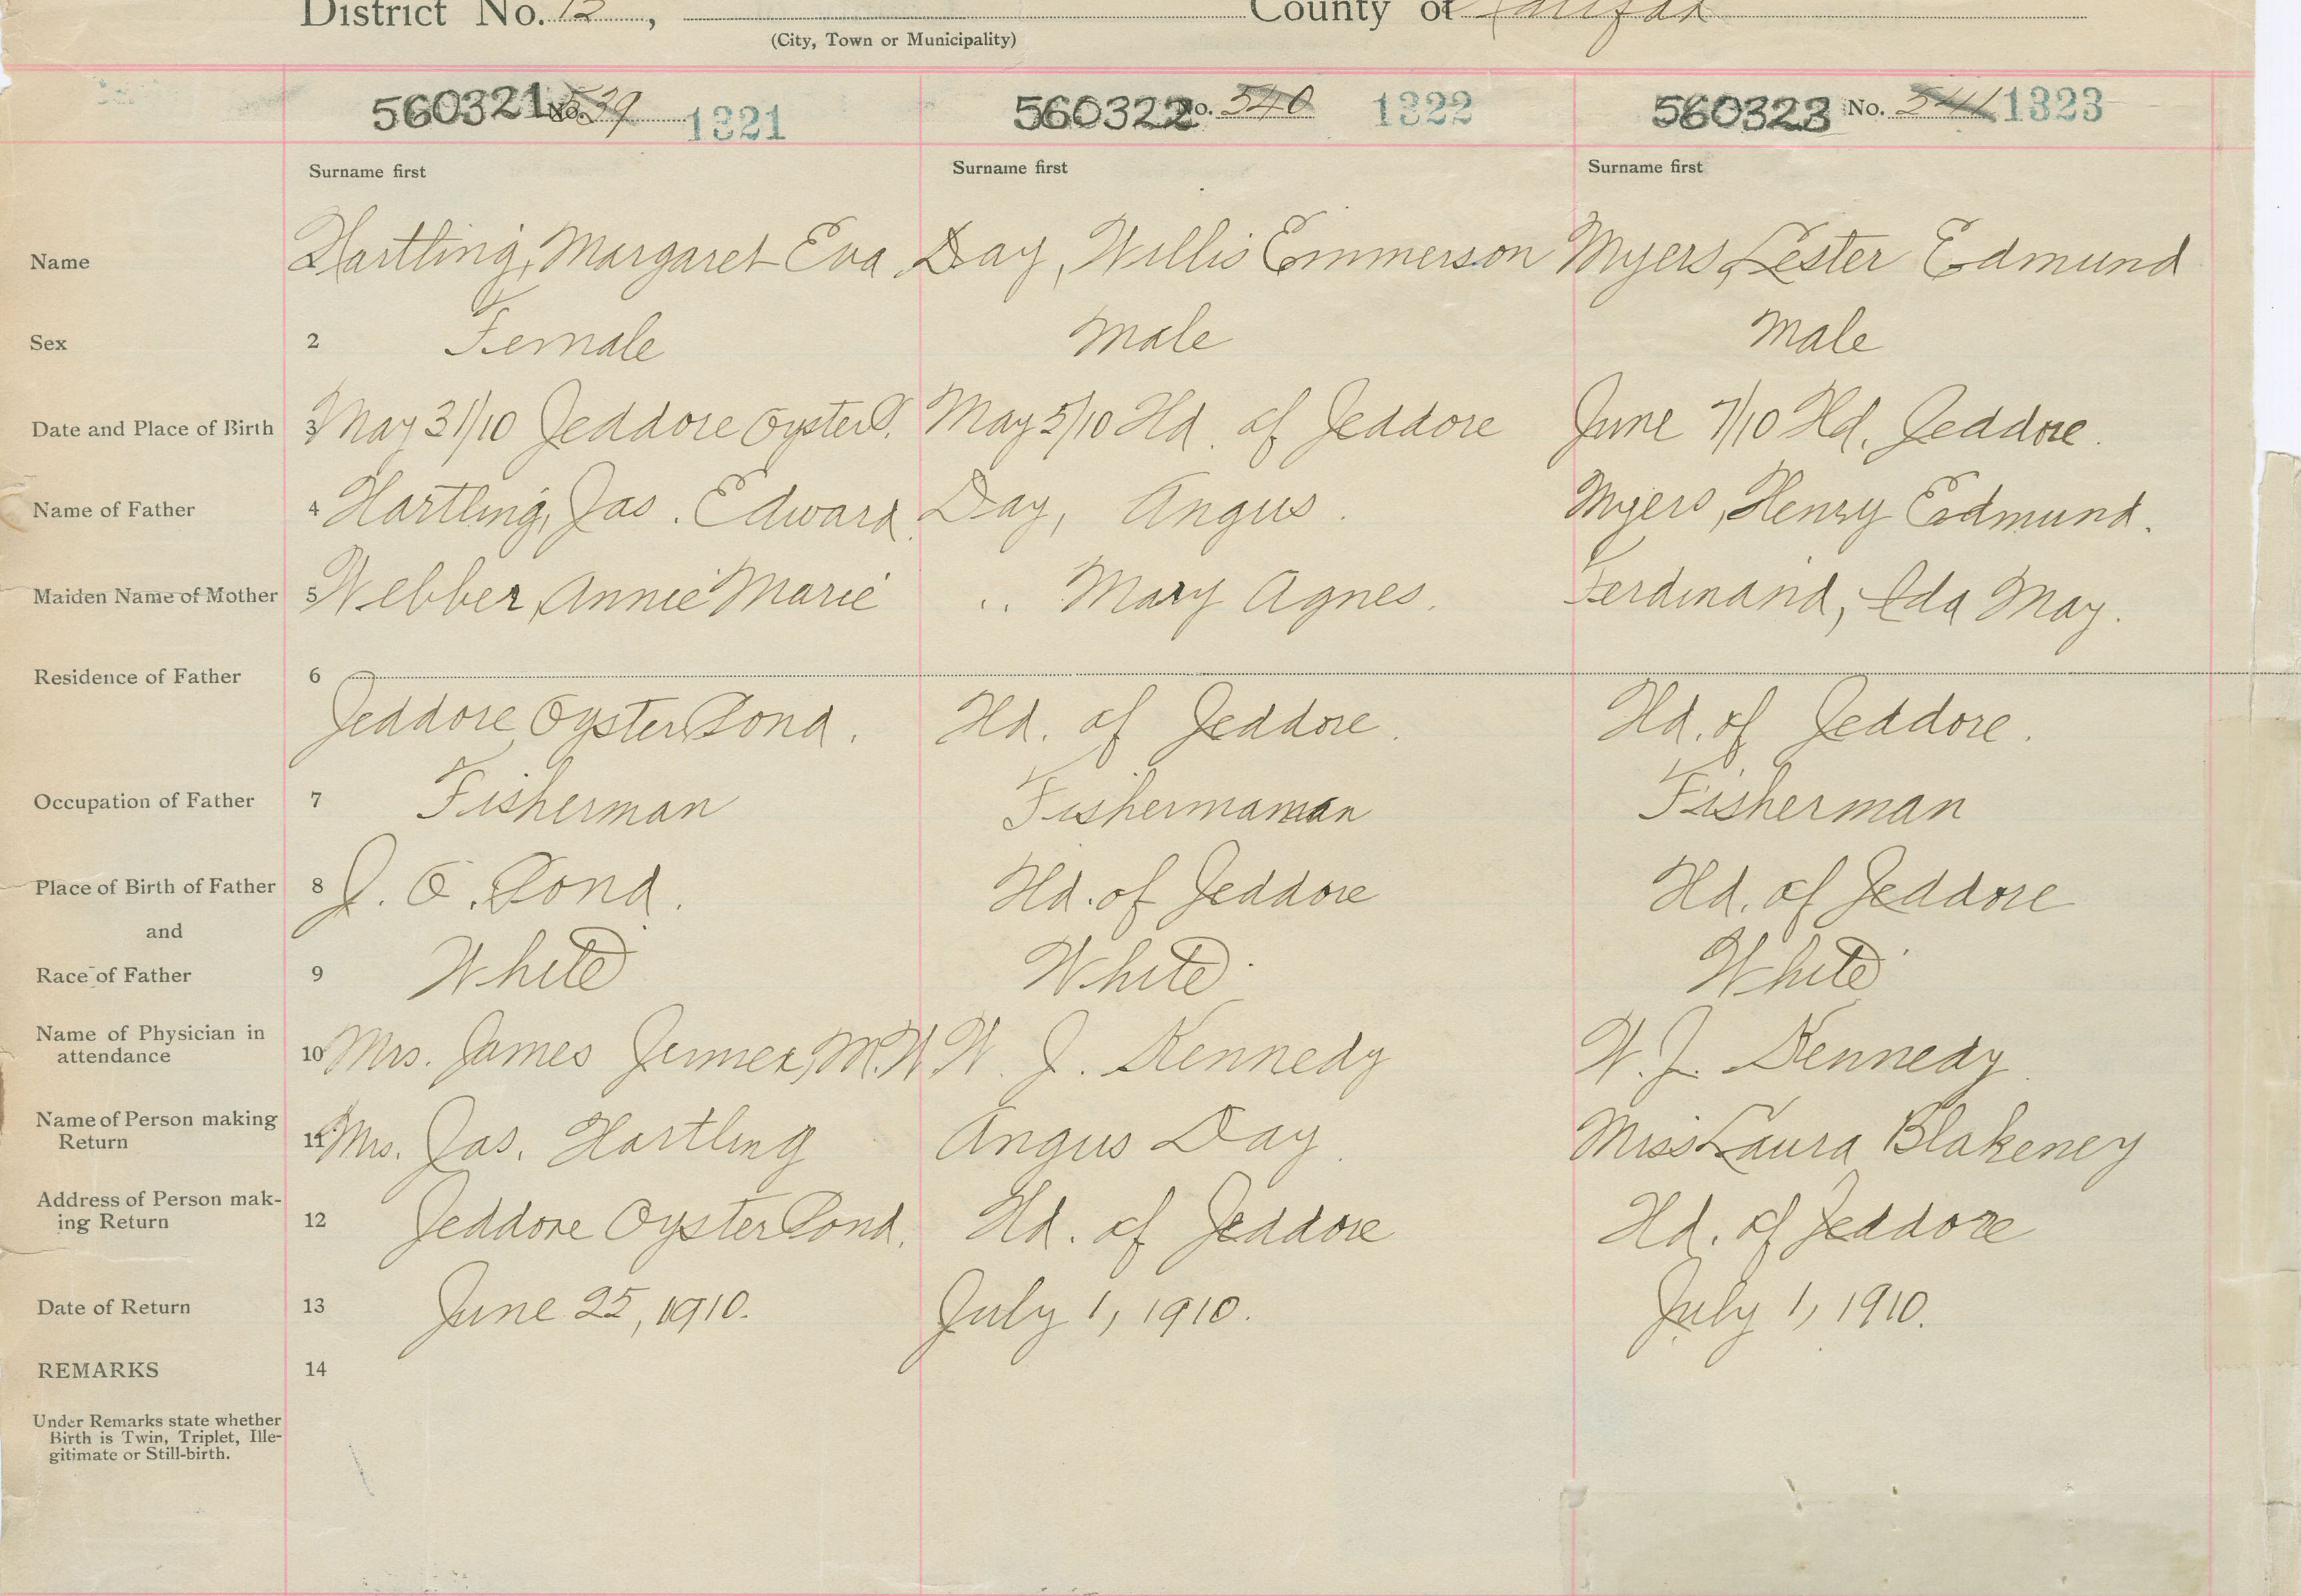 District No. 13, County of Halifax
(City, Town or Municipality)
560321 No. 539 1321 560322 No. 340 1322 560323 No. 541 1323
Surname first Surname first Surname first
Name 1 Hartling, Margaret Eva Day, Willis Emmerson Myers, Lester Edmund
Sex 2 Female Male Male
Date and Place of Birth 3 May 31/10 Jeddore Oyster P. May 5/10 Hd. of Jeddore June 7/10 Hd. Jeddore.
Name of Father 4 Hartling, Jas. Edward Day, Angus. Myers, Henry Edmund.
Maiden Name of Mother 5 Webber, Annie Marie " Mary Agnes. Ferdinand, Ida May.
Residence of Father 6
Jeddore Oyster Pond. Hd. of Jeddore. Hd. of Jeddore.
Occupation of Father 7 Fisherman Fishermaman Fisherman
Place of Birth of Father 8 J. O. Pond. Hd. of Jeddore Hd. of Jeddore
and
Race of Father 9 White White White
Name of Physician in
attendance 10 Mrs. James M.W. W. J. Kennedy W. J. Kennedy
Name of Person making
Return 11 Mrs. Jas. Hartling Angus Day. Miss Laura Blakeney
Address of Person mak-
ing Return 12 Jeddore Oyster Pond. Hd. of Jeddore Hd. of Jeddore
Date of Return 13 June 25, 1910. July 1, 1910. July 1, 1910.
REMARKS 14
Under Remarks state whether
Birth is Twin, Triplet, Ille-
gitimate or Still-birth.